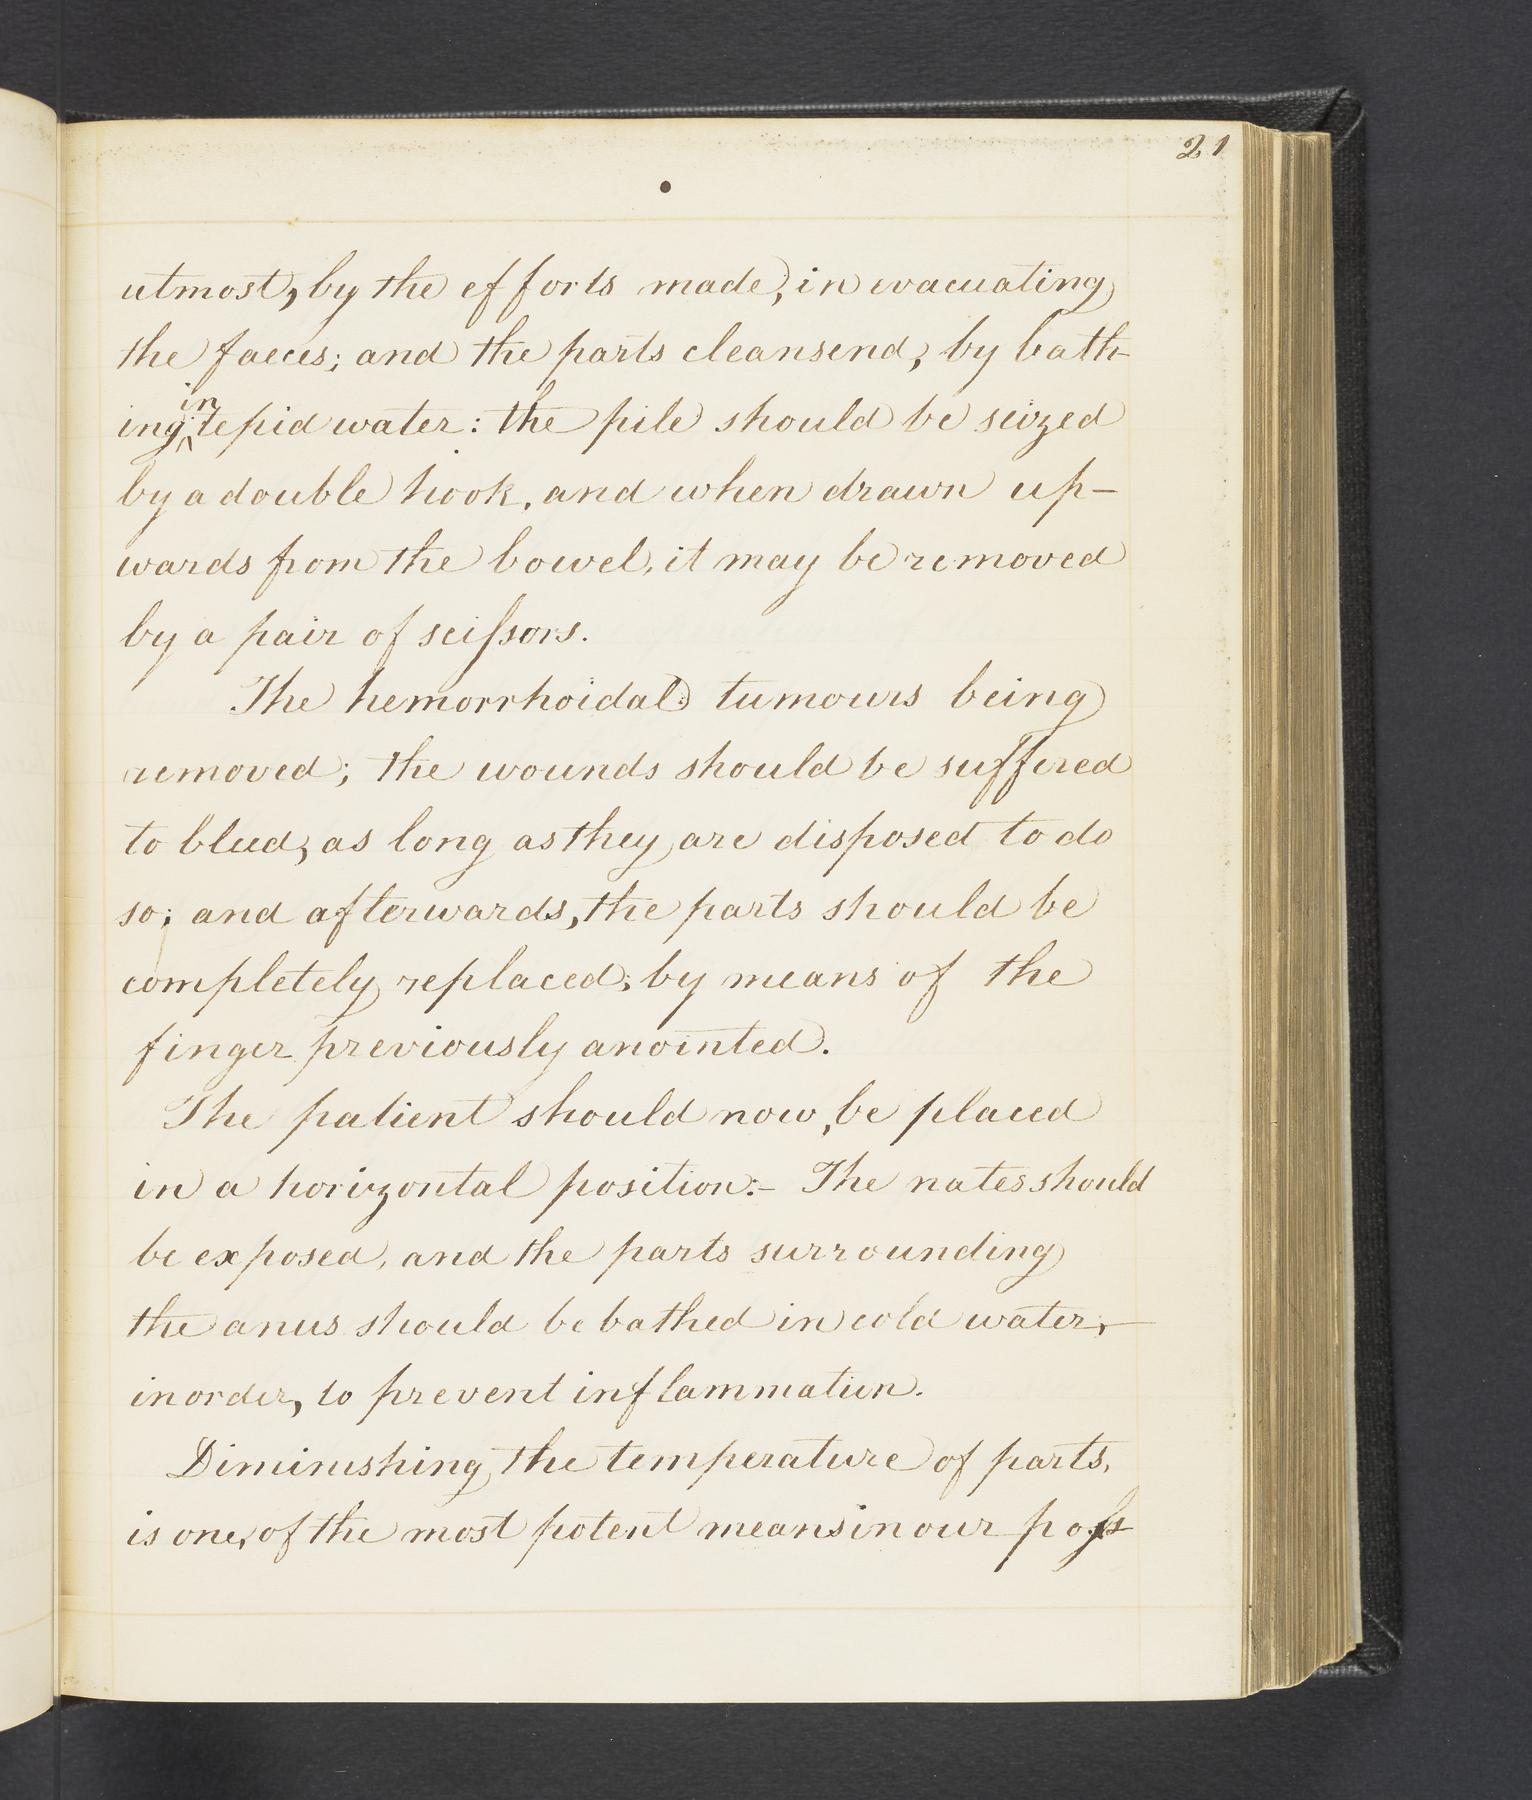 21
utmost, by the efforts made, in evacuating
the faeces; and the parts cleansend, by bath-
ing in tepid water: the pile should be seized
by a double hook, and when drawn up-
wards from the bowel, it may be removed
by a pair of scifsors.
The hemorrhoidal tumours being
removed; the wounds should be suffered
to bleed, as long as they are disposed to do
so; and afterwards, the parts should be
completely replaced; by means of the
finger previously anointed.
The patient should now, be placed
in a horizontal position:- The nates should
be exposed, and the parts surrounding
the anus should be bathed in cold water,-
in order, to prevent inflammation.
Diminishing the temperature of parts,
is one, of the most potent means in our pofs